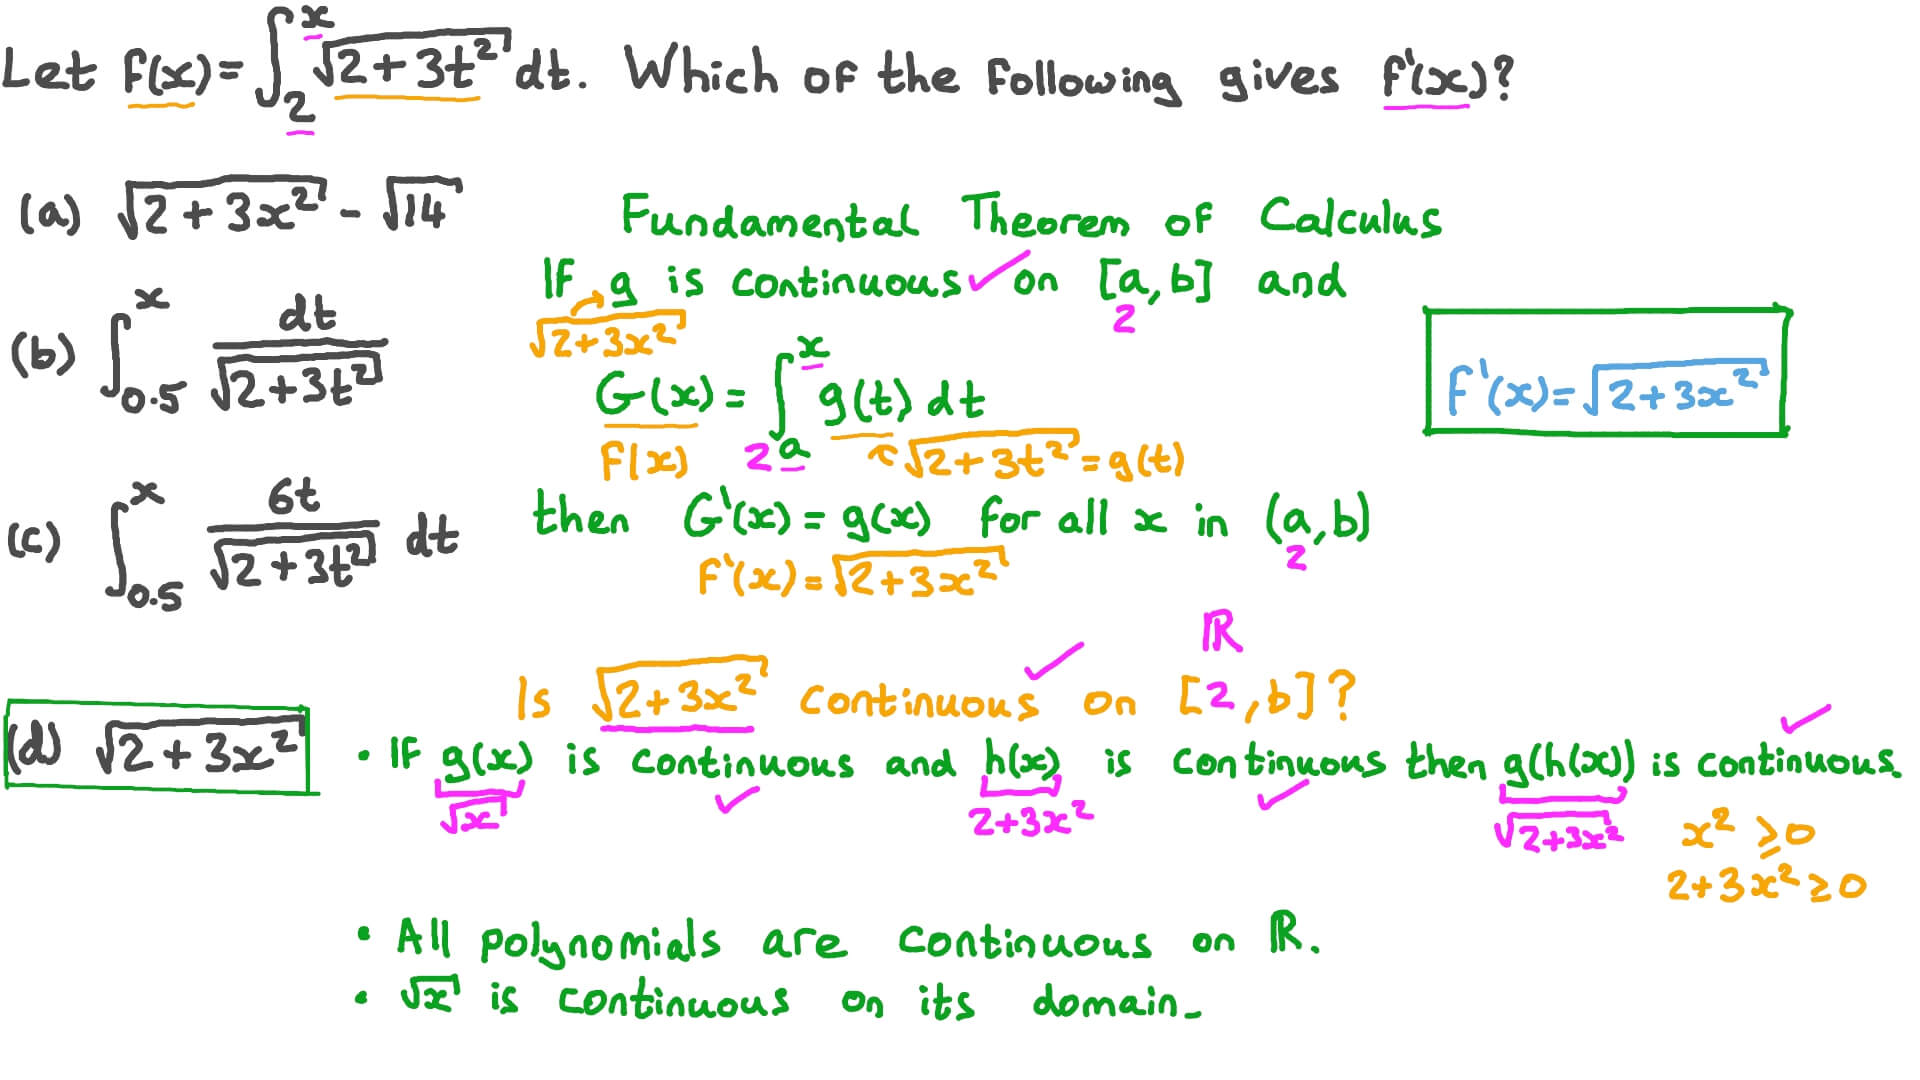 Let f(x) = ∫₂ˣ √(2+3t²) dt. Which of the following gives f'(x)?
(a) √(2+3x²) - √14
(b) ∫₀.₅ˣ dt/√(2+3t²)
(c) ∫₀.₅ˣ 6t/√(2+3t²) dt
(d) √(2+3x²)
Fundamental Theorem of Calculus
If g is continuous ✓ on [a,b] and
√(2+3x²) 2
G(x) = ∫ₐˣ g(t) dt
F(x) 2 √(2+3t²) = g(t)
then G'(x) = g(x) for all x in (a,b)
F'(x) = √(2+3x²) 2
F'(x) = √(2+3x²)
ℝ
Is √(2+3x²) continuous ✓ on [2,b]?
• If g(x) is continuous and h(x) is continuous then g(h(x)) is continuous. ✓
√x ✓ 2+3x² ✓ √(2+3x²)
x² ≥ 0
2+3x² ≥ 0
• All polynomials are continuous on ℝ.
• √x is continuous on its domain.